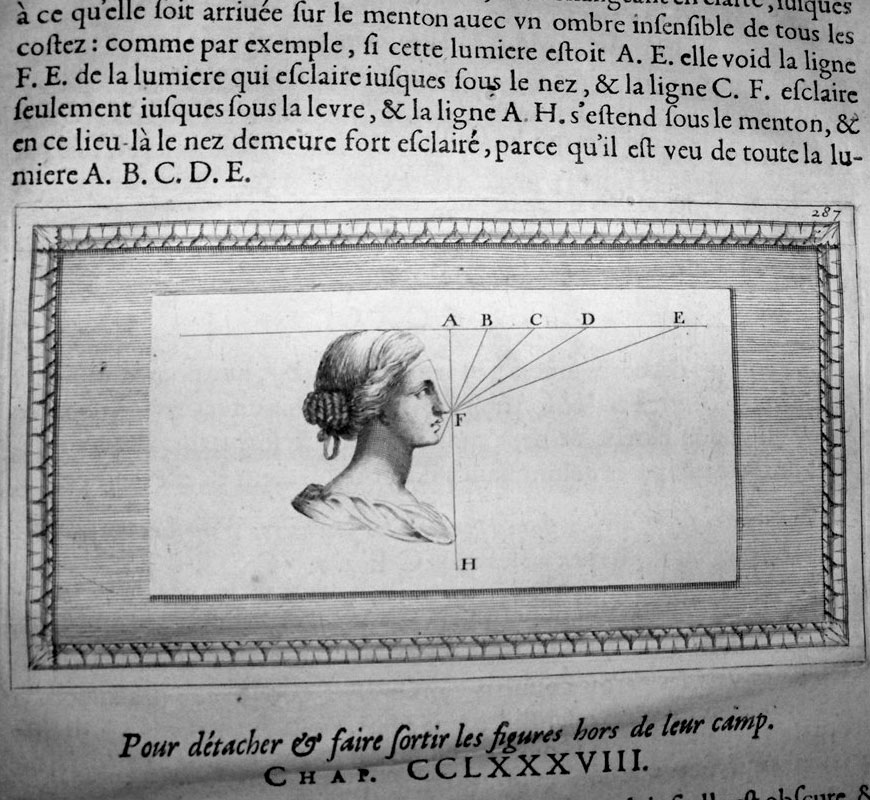 à ce qu'elle ſoit arriuée ſur le menton auec vn ombre inſenſible de tous les
coſtez : comme par exemple, ſi cette lumiere eſtoit A. E. elle void la ligne
F. E. de la lumiere qui eſclaire iuſques ſous le nez, & la ligne C. F. eſclaire
ſeulement iuſques ſous la levre, & la ligne A. H. s'eſtend ſous le menton, &
en ce lieu-là le nez demeure fort eſclairé, parce qu'il eſt veu de toute la lu-
miere A. B. C. D. E.
287
A B C D E
F
H
Pour détacher & faire ſortir les figures hors de leur camp.
CHAP. CCLXXXVIII.